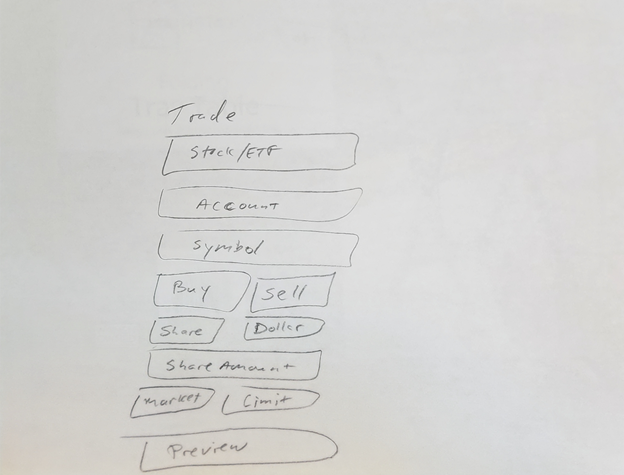 Trade
Stock/ETF
Account
Symbol
Buy Sell
Share Dollar
Share Amount
Market Limit
Preview